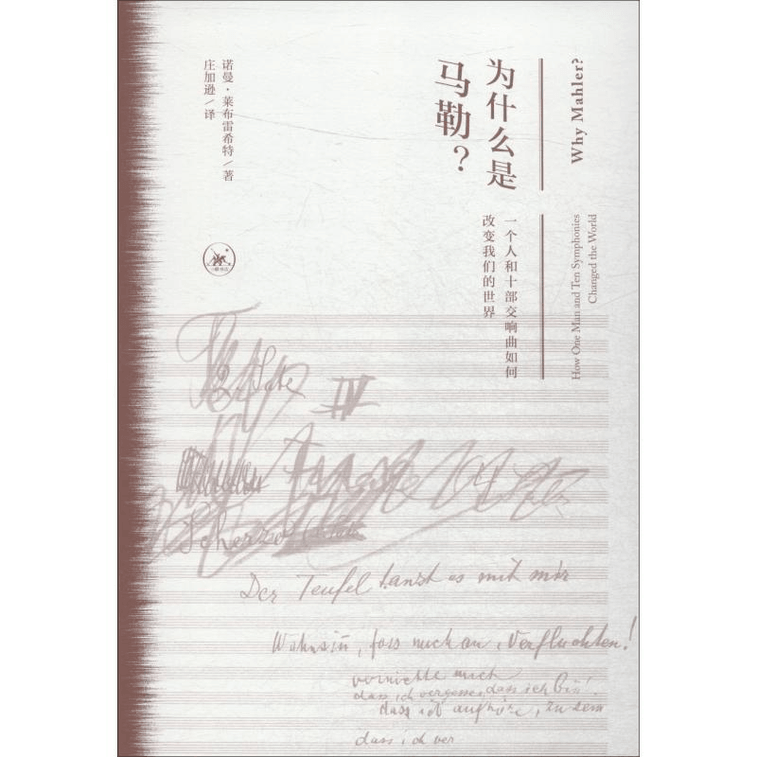 Why Mahler?
How One Man and Ten Symphonies
Changed the World
为什么是
马勒？
一个人和十部交响曲如何
改变我们的世界
诺曼·莱布雷希特/著
庄加逊/译
IV
Scherzo
Der Teufel tanzt es mit mir
Wahnsin̄, fass mich an, Verfluchten!
vernichte mich
dass ich vergesse, dass ich bin!
dass ich aufhöre, zu sein
dass ich ver